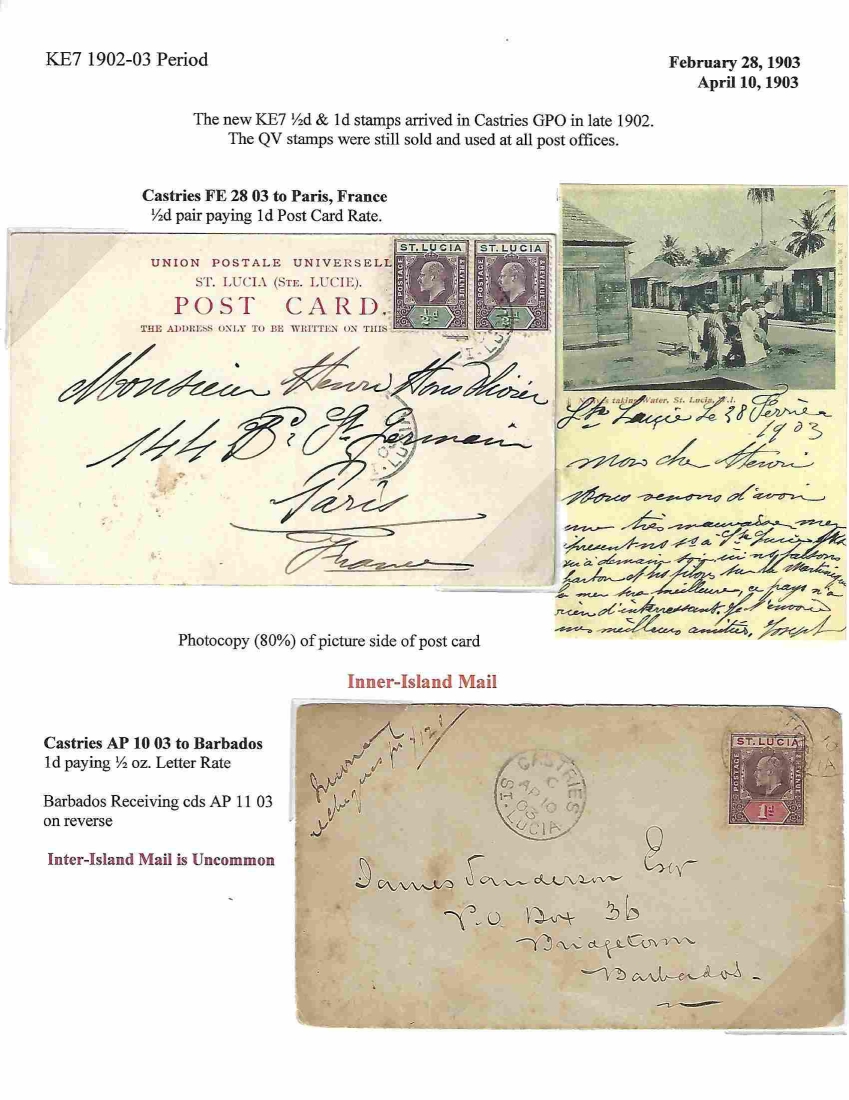 KE7 1902-03 Period
February 28, 1903
April 10, 1903
The new KE7 ½d & 1d stamps arrived in Castries GPO in late 1902.
The QV stamps were still sold and used at all post offices.
Castries FE 28 03 to Paris, France
½d pair paying 1d Post Card Rate.
UNION POSTALE UNIVERSELL
ST. LUCIA (STE. LUCIE).
POST CARD.
THE ADDRESS ONLY TO BE WRITTEN ON THIS
ST. LUCIA
POSTAGE
& REVENUE
½d
ST. LUCIA
POSTAGE
& REVENUE
½d
Monsieur Henri
144 Bd St Germain
Paris
France
taking Water, St. Lucia, W.I.
Ste Lucie le 28 Février
1903
Mon cher Henri
Nous venons d'avoir
une très mauvaise mer
à demain
la mer sera meilleure, ce pays n'a
rien d'interressant. Je t'envoie
mes meilleurs amitiés. Joseph
Photocopy (80%) of picture side of post card
Inner-Island Mail
Castries AP 10 03 to Barbados
1d paying ½ oz. Letter Rate
Barbados Receiving cds AP 11 03
on reverse
Inter-Island Mail is Uncommon
CASTRIES
C
AP 10
03
ST. LUCIA
ST. LUCIA
POSTAGE
& REVENUE
1d
James Sanderson Esqr
P.O. Box 36
Bridgetown
Barbados